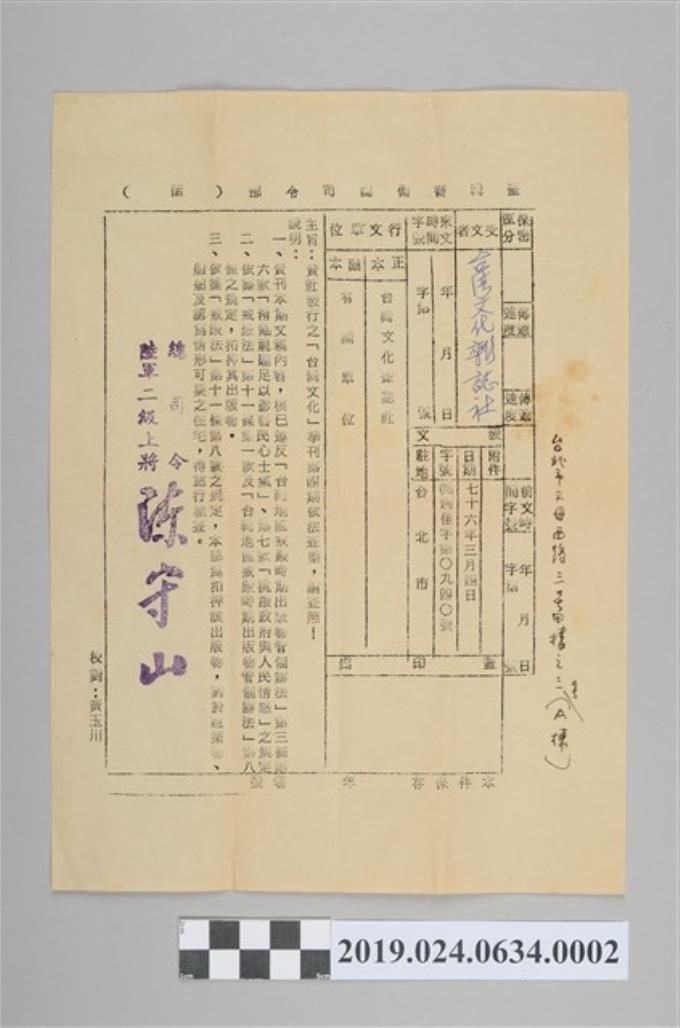 臺灣警備總司令部（函）
保密區分
傳遞速度
受文者
台灣文化雜誌社
來文時間字號
年 月 日
字第 號
行文單位
正本
台灣文化雜誌社
副本
有關單位
發文
附件
日期
七十六年三月四日
字號
字第〇九四〇號
駐地
台北市
前文時間字號
年 月 日
字第 號
蓋印處
主旨：貴社發行之「台灣文化」季刊第四期依法查禁，請查照！
說明：
一、貴刊本期文稿內容，核已違反「台灣地區戒嚴時期出版物管制辦法」第三條第
六款「淆亂視聽足以影響民心士氣」、第七款「挑撥政府與人民情感」之規定
二、依據「戒嚴法」第十一條第一款及「台灣地區戒嚴時期出版物管制辦法」第八
條之規定，扣押其出版物。
三、依據「戒嚴法」第十一條第八款之規定，本部為扣押該出版物，對於建築物、
船舶及認為情形可疑之住宅，得施行檢查。
總司令
陸軍二級上將 陳守山
校對：黃玉川
本件保存 年 號
2019.024.0634.0002